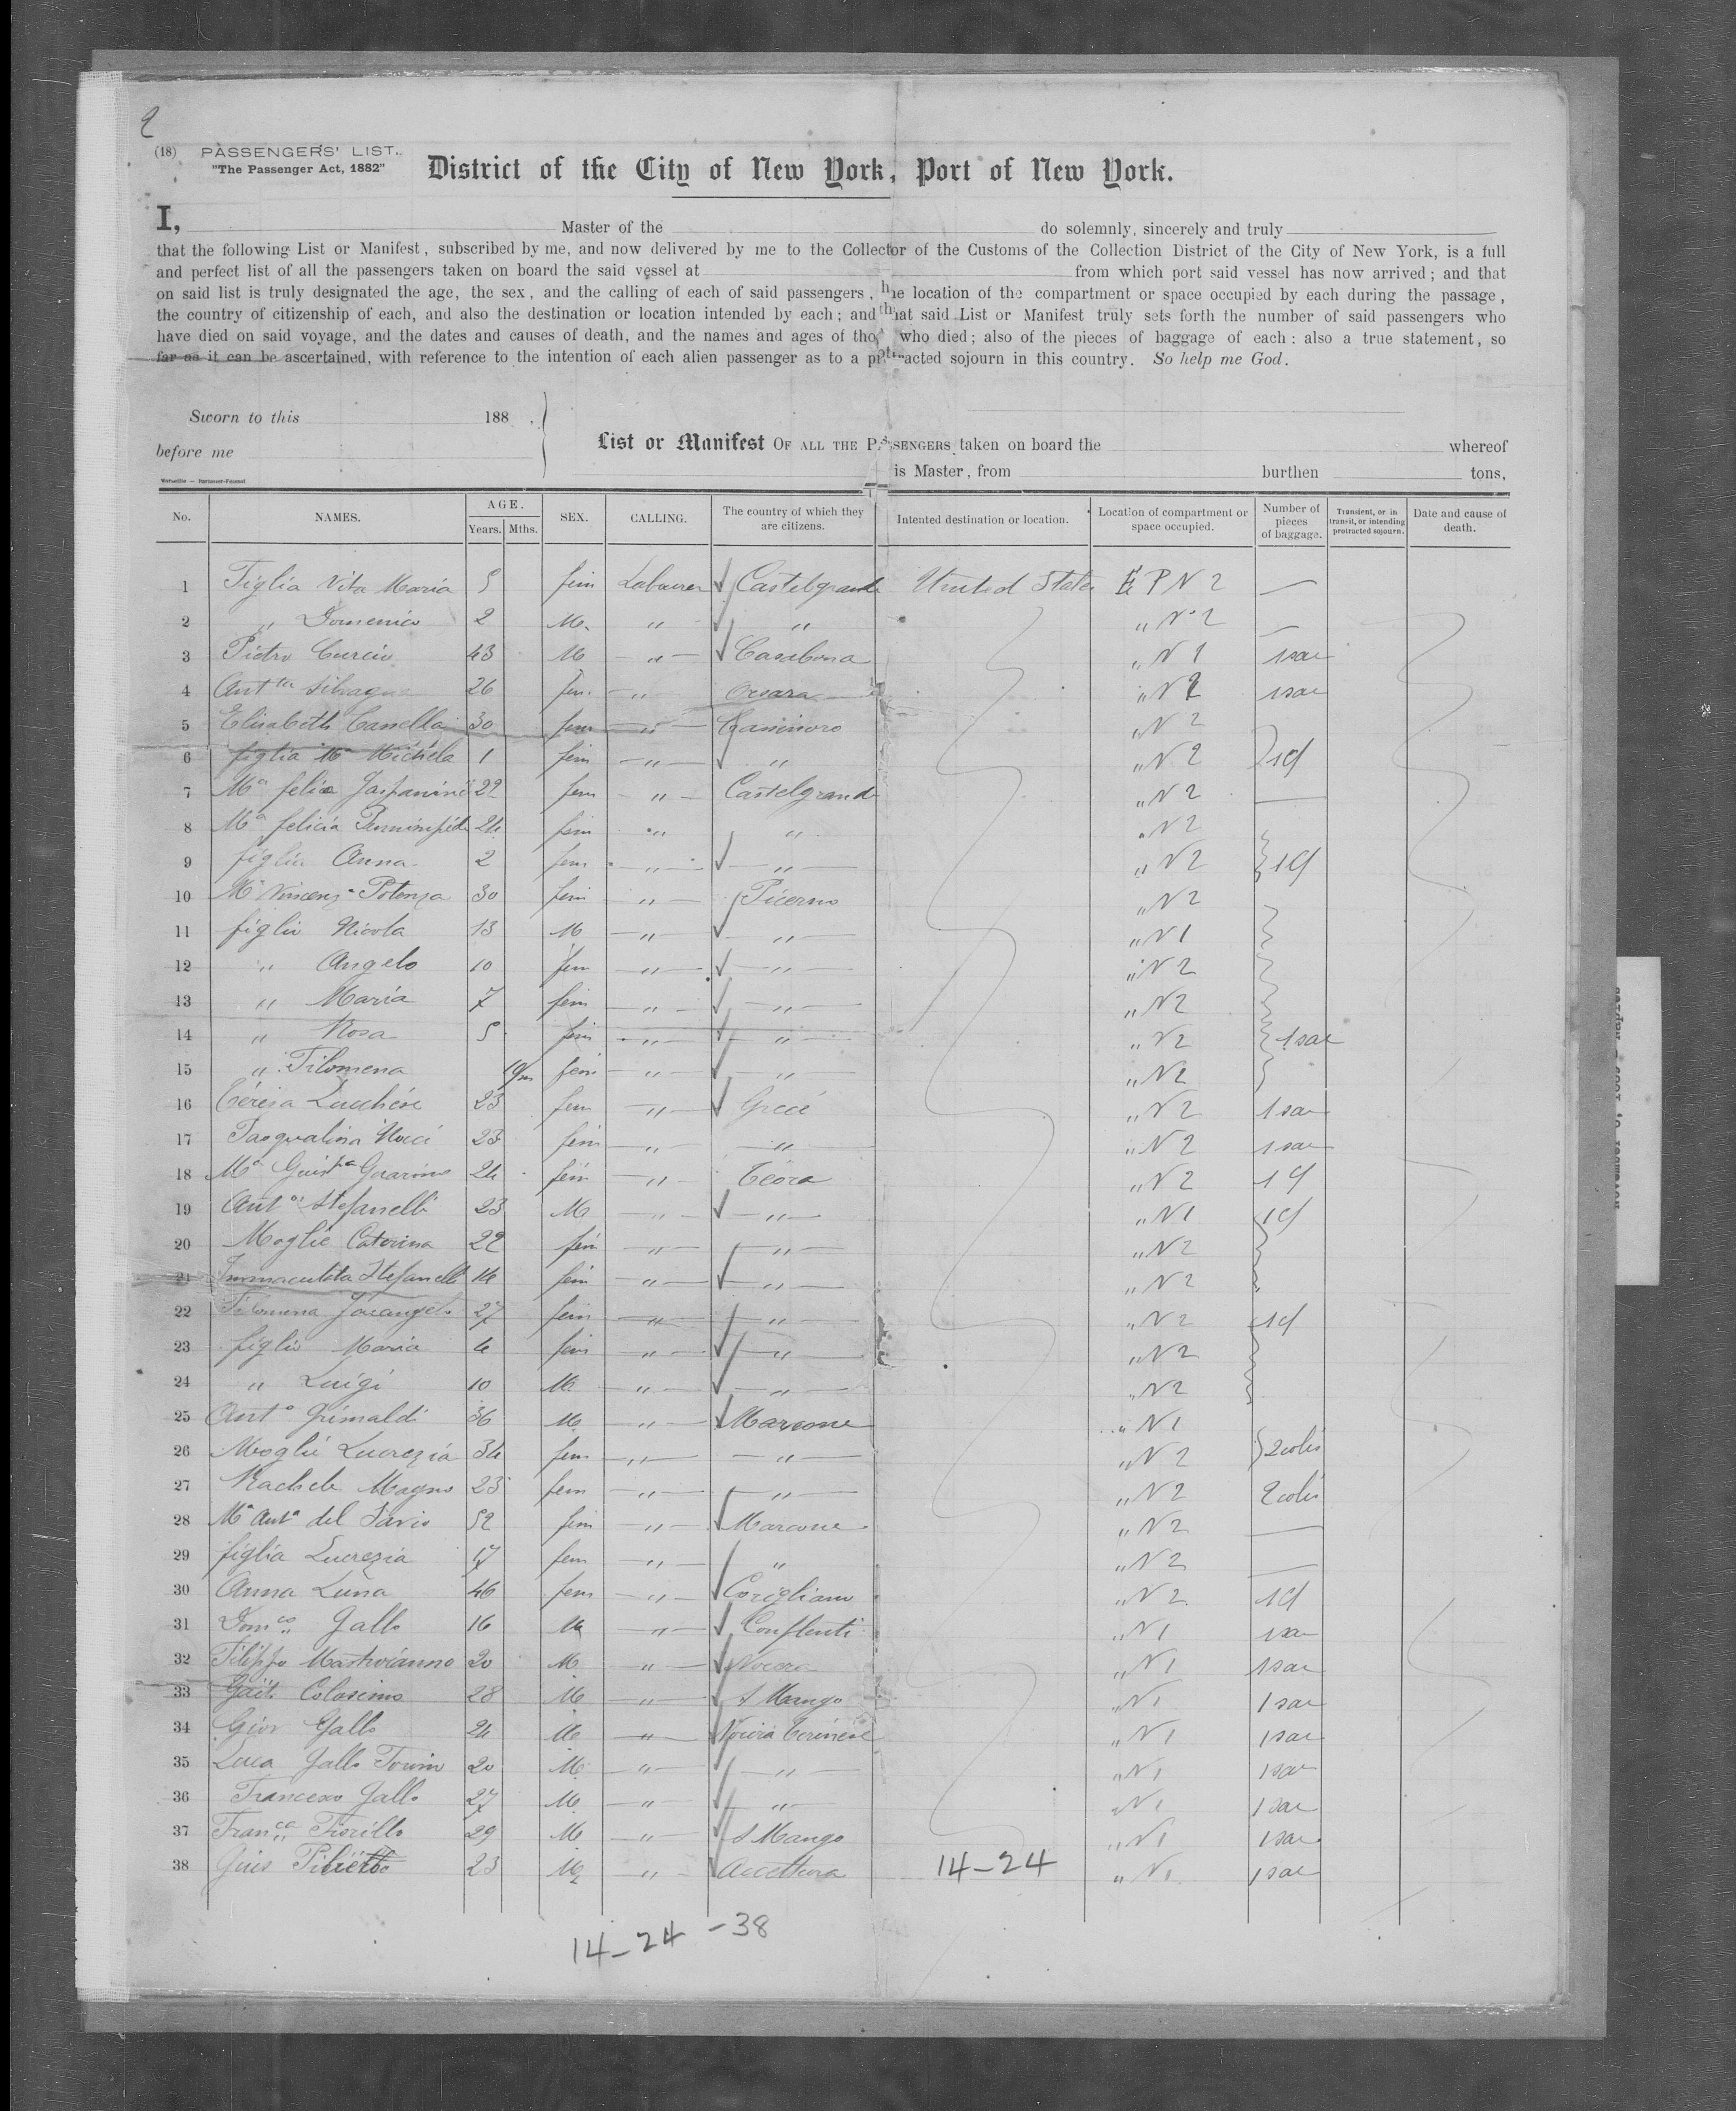 2
(18) PASSENGERS' LIST.
"The Passenger Act, 1882"
District of the City of New York, Port of New York.
I, Master of the do solemnly, sincerely and truly
that the following List or Manifest, subscribed by me, and now delivered by me to the Collector of the Customs of the Collection District of the City of New York, is a full
and perfect list of all the passengers taken on board the said vessel at from which port said vessel has now arrived; and that
on said list is truly designated the age, the sex, and the calling of each of said passengers, he location of the compartment or space occupied by each during the passage,
the country of citizenship of each, and also the destination or location intended by each; and that said List or Manifest truly sets forth the number of said passengers who
have died on said voyage, and the dates and causes of death, and the names and ages of tho who died; also of the pieces of baggage of each: also a true statement, so
far as it can be ascertained, with reference to the intention of each alien passenger as to a protracted sojourn in this country. So help me God.
Sworn to this 188 .
before me
List or Manifest OF ALL THE PASSENGERS taken on board the whereof
is Master, from burthen tons,
No. NAMES. AGE. Years. Mths. SEX. CALLING. The country of which they are citizens. Intented destination or location. Location of compartment or space occupied. Number of pieces of baggage. Transient, or in transit, or intending protracted sojourn. Date and cause of death.
1 Figlia Vita Maria 5 fem Labourer Castelgrande United States E P N 2 —
2 " Domenico 2 M. " " " N° 2 —
3 Pietro Curcio 43 M " Casabona " N 1 1 sac
4 Ant.ta 26 fem. " Orsara " N 2 1 sac
5 Elisabeth Canella 30 fem " " N 2
6 figlia Ma Michela 1 fem " " " N 2 1 cf
7 Ma felice 22 fem " Castelgrand " N 2 —
8 Ma felicia 24 fem " " " N 2
9 figlia Anna 2 fem " " " N 2 1 cf
10 Ma Vincenza Potenza 30 fem " Picerno " N 2
11 figlio Nicola 13 M " " " N 1
12 " Angelo 10 fem " " " N 2
13 " Maria 7 fem " " " N 2
14 " Rosa 5 fem " " " N 2 1 sac
15 " Filomena fem " " " N 2
16 Teresa Lucchese 23 fem " " N 2 1 sac
17 Pasqualina 23 fem " " " N 2 1 sac
18 Ma Guarino 24 fem " Teora " N 2 1 cf
19 Anto Stefanelli 23 M " " " N 1 1 cf
20 Moglie Caterina 22 fem " " " N 2
21 Immacolata Stefanelli fem " " " N 2
22 Filomena 27 fem " " " N 2 1 cf
23 figlio Maria fem " " " N 2
24 " Luigi 10 M " " " N 2
25 Anto Grimaldi 36 M " Marcone " N 1
26 Moglie Lucrezia 34 fem " " " N 2 2 colis
27 Rachele Magno 23 fem " " " N 2 2 colis
28 Ma Anta del 52 fem " Marcone " N 2 —
29 figlia Lucrezia 17 fem " " " N 2 —
30 Anna Luna 46 fem " Corigliano " N 2 1 cf
31 Domco Gallo 16 M " Conflenti " N 1 1 sac
32 Filippo Mastroianno 20 M " Nocera " N 1 1 sac
33 Gait. Colosimo 28 M " S Mango " N 1 1 sac
34 Giov Gallo 24 M " Terinese " N 1 1 sac
35 Luca Gallo 20 M " " " N 1 1 sac
36 Francesco Gallo 27 M " " " N 1 1 sac
37 Franca Fiorillo 29 M " S Mango " N 1 1 sac
38 Guis 23 M " Accettura 14-24 " N 1 1 sac
14-24 -38